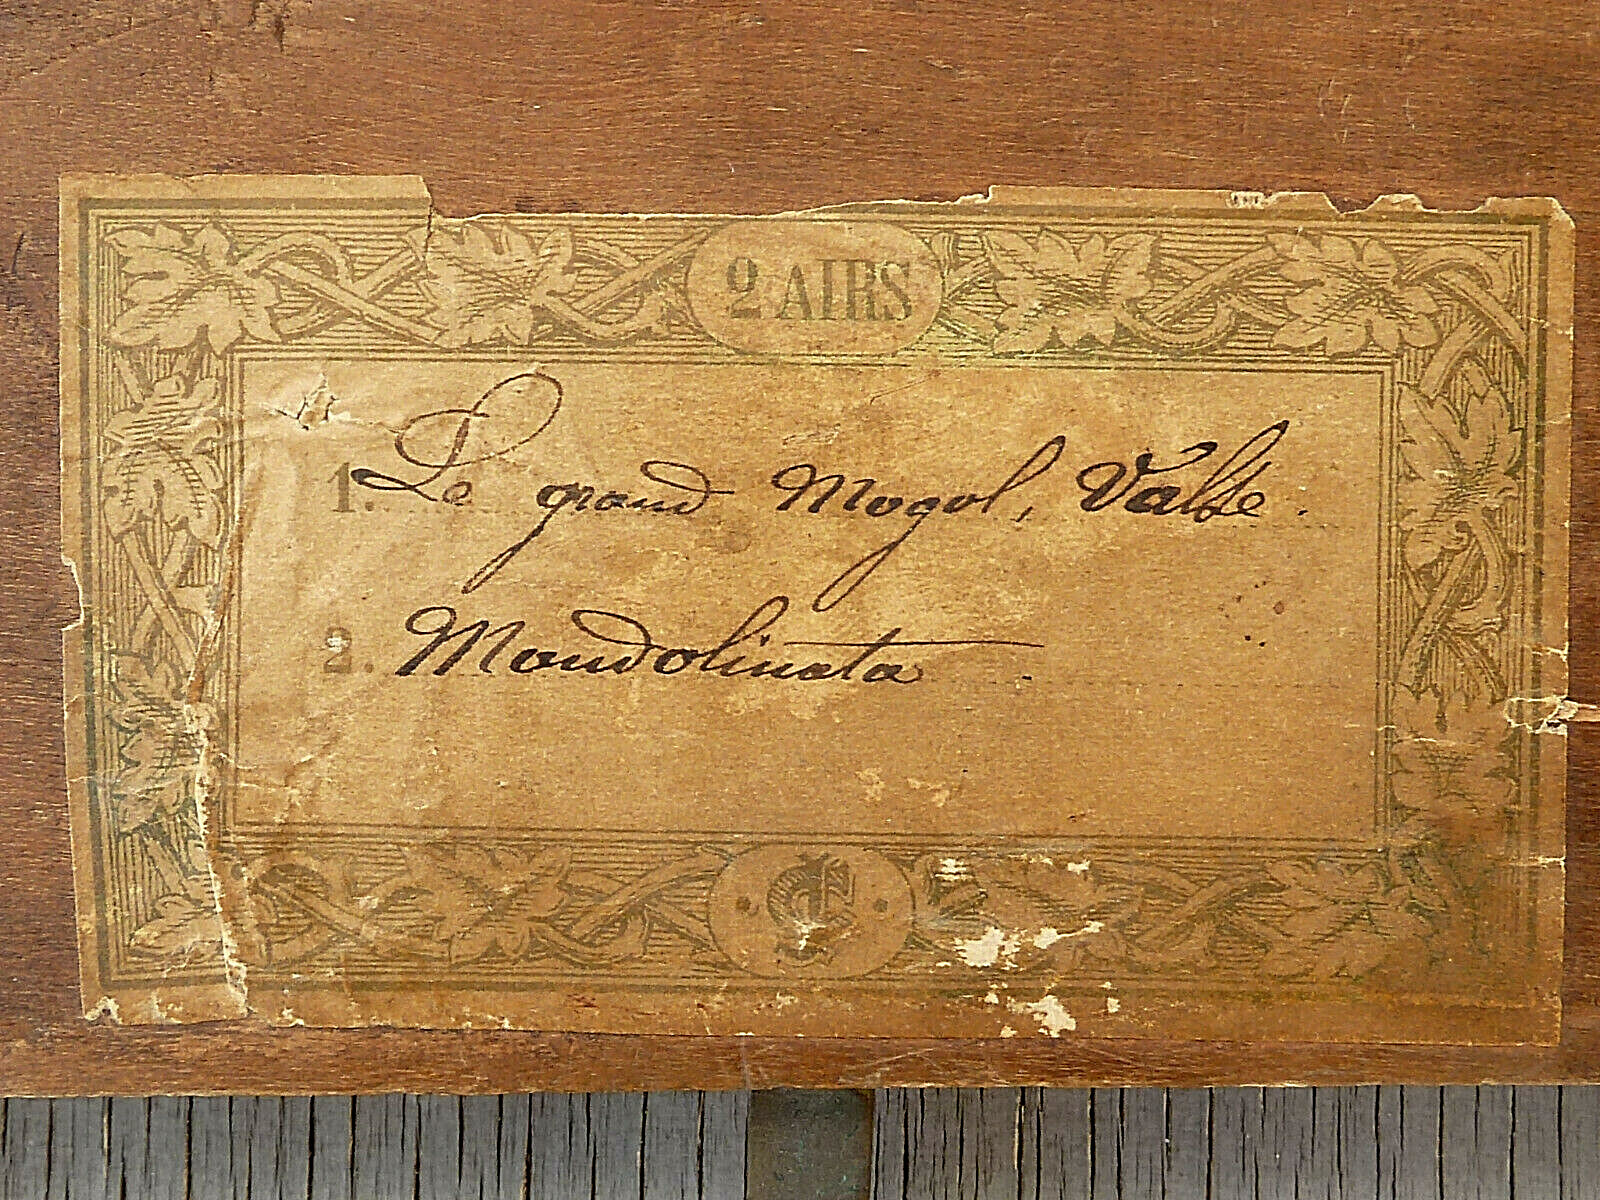 2 AIRS
1. Le grand Mogol, Valse.
2. Mandolinata